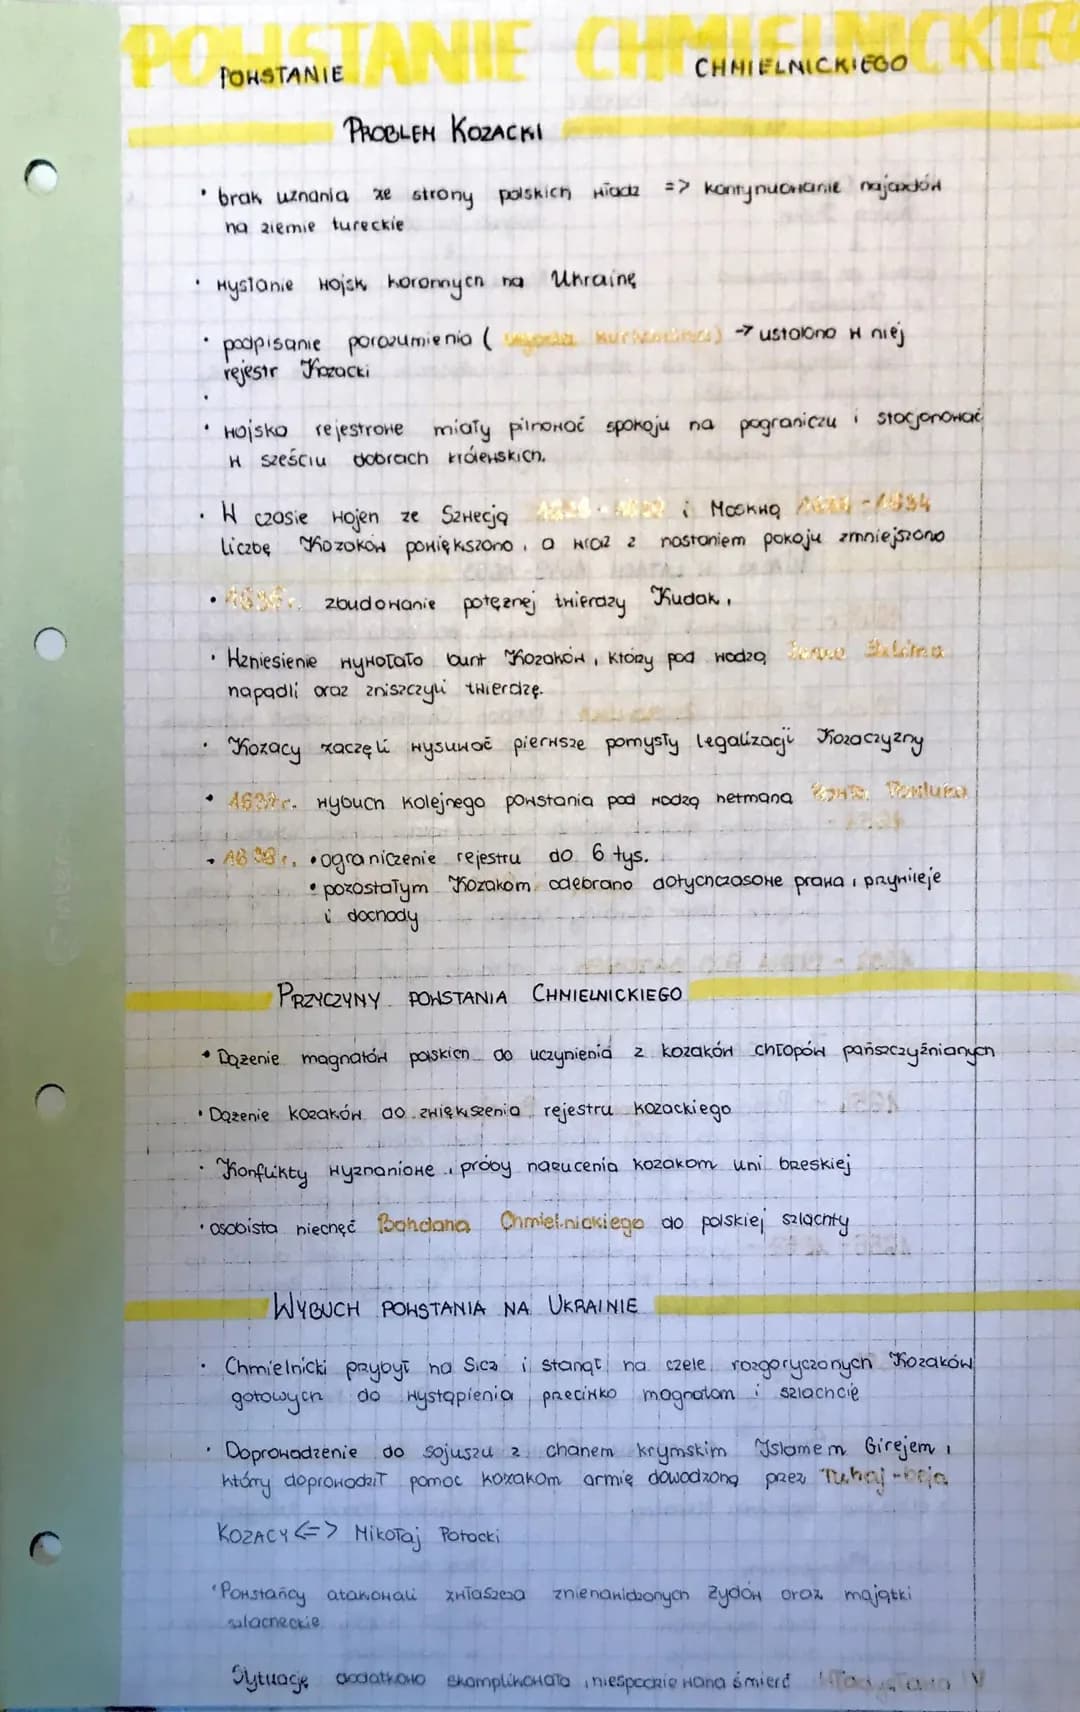 POWSTANIE CHMIELNICKIEGO
POWSTANIE CHMIELNICKIEGO
PROBLEM KOZACKI
• brak uznania ze strony polskich władz => kontynuowanie najazdów
na ziemie tureckie
• wysłanie wojsk koronnych na Ukrainę
• podpisanie porozumienia ( ugoda ) → ustalono w niej
rejestr Kozacki
• wojsko rejestrowe miały pilnować spokoju na pograniczu i stacjonować
w sześciu dobrach królewskich.
• W czasie wojen ze Szwecją i Moskwą - 1634
liczbę Kozaków powiększono, a wraz z nastaniem pokoju zmniejszono
• zbudowanie potężnej twierdzy Kudak,
• Wzniesienie wywołało bunt Kozaków, którzy pod wodzą
napadli oraz zniszczyli twierdzę.
• Kozacy zaczęli wysuwać pierwsze pomysły legalizacji Kozaczyzny
• 1637r. wybuch kolejnego powstania pod wodzą hetmana Pawluka
• 1638r. • ograniczenie rejestru do 6 tys.
• pozostałym Kozakom odebrano dotychczasowe prawa, przywileje
i dochody
PRZYCZYNY POWSTANIA CHMIELNICKIEGO
• Dążenie magnatów polskich do uczynienia z kozaków chłopów pańszczyźnianych
• Dążenie kozaków do zwiększenia rejestru kozackiego
• Konflikty wyznaniowe, próby narzucenia kozakom uni brzeskiej
• osobista niechęć Bohdana Chmielnickiego do polskiej szlachty
WYBUCH POWSTANIA NA UKRAINIE
• Chmielnicki przybył na Sicz i stanął na czele rozgoryczonych Kozaków
gotowych do wystąpienia przeciwko magnatom i szlachcie
• Doprowadzenie do sojuszu z chanem krymskim Islamem Girejem,
który doprowadził pomoc kozakom armię dowodzoną przez Tuhaj-beja
KOZACY <=> Mikołaj Potocki
• Powstańcy atakowali zwłaszcza znienawidzonych Żydów oraz majątki
szlacheckie
Sytuację dodatkowo skomplikowała niespodziewana śmierć Władysława IV